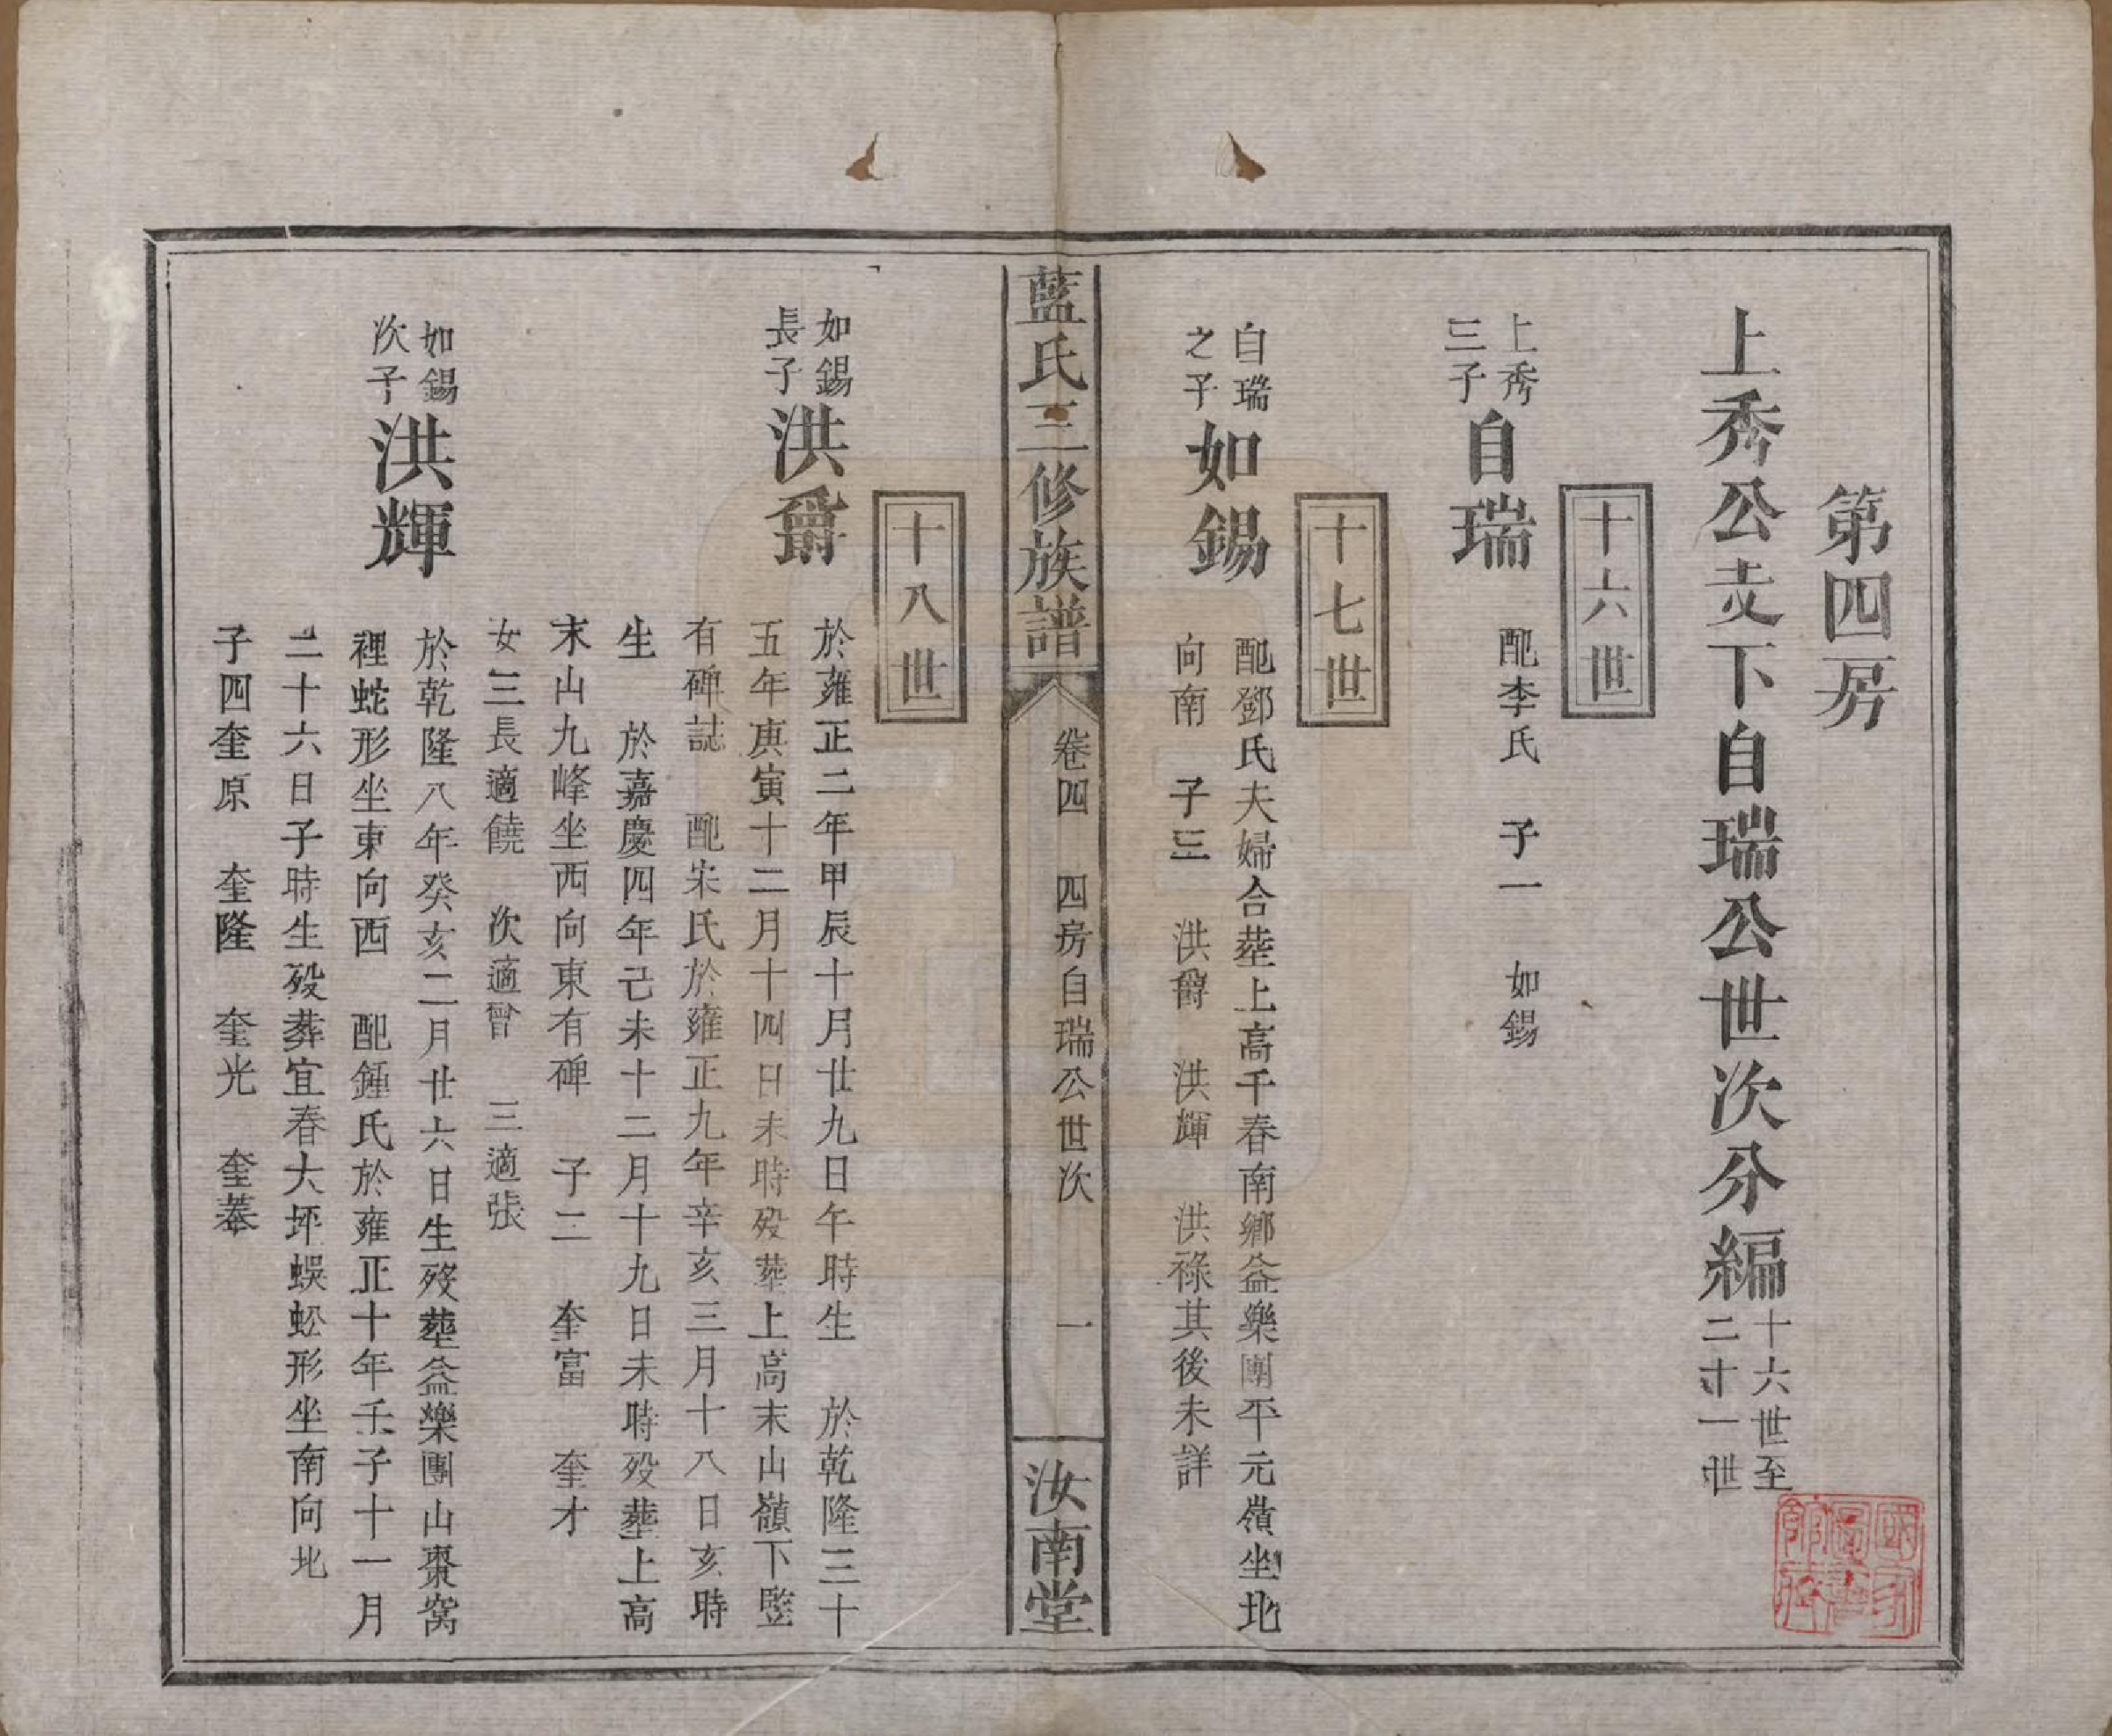 第四房
上秀公支下自瑞公世次分編
十六世至
二十一世
十六世
上秀
三子
自瑞
配李氏　子一　如錫
十七世
自瑞
之子
如錫
配鄧氏夫婦合塟上高千春南鄉益樂團平元嶺坐北
向南　子三　洪爵　洪輝　洪祿其後未詳
藍氏三修族譜
卷四　四房自瑞公世次　一
汝南堂
十八世
如錫
長子
洪爵
於雍正二年甲辰十月廿九日午時生　於乾隆三十
五年庚寅十二月十四日未時歿塟上高末山嶺下暨
有碑誌　配宋氏於雍正九年辛亥三月十八日亥時
生　於嘉慶四年己未十二月十九日未時歿塟上高
末山九峰坐西向東有碑　子二　奎富　奎才
女三長適饒　次適曾　三適張
如錫
次子
洪輝
於乾隆八年癸亥二月廿六日生歿塟益樂團山棗窩
裡蛇形坐東向西　配鍾氏於雍正十年壬子十一月
二十六日子時生歿葬宜春大坪蜈蚣形坐南向北
子四奎原　奎隆　奎光　奎
國家圖書館藏